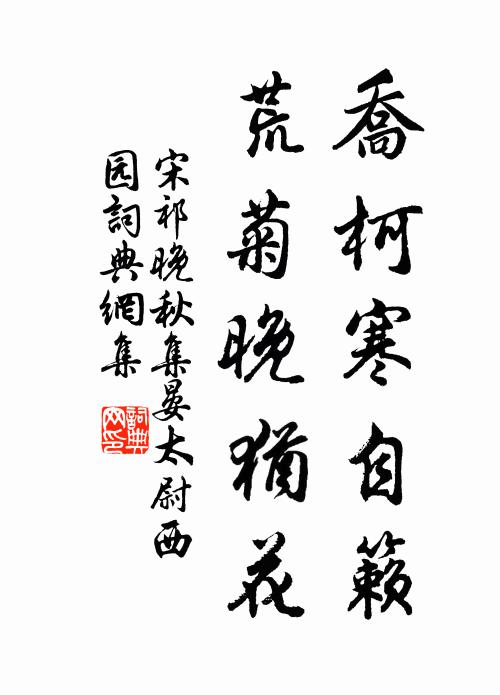 喬柯寒自籟
荒菊晚猶花
宋祁晚秋集晏太尉西
园詞典網集
詞典网印